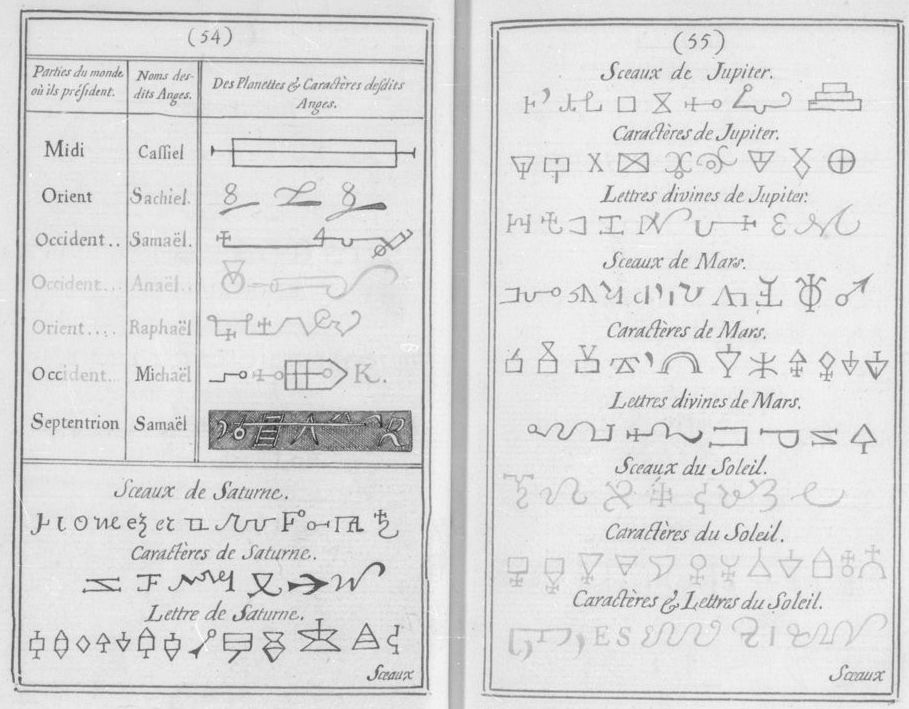 (54)
Parties du monde où ils président.
Noms des-dits Anges.
Des Planettes & Caractères desdits Anges.
Midi Cassiel
Orient Sachiel.
Occident.. Samaël.
Occident... Anaël..
Orient.... Raphaël
Occident... Michaël K.
Septentrion Samaël
Sceaux de Saturne.
Caractères de Saturne.
Lettre de Saturne.
Sceaux
(55)
Sceaux de Jupiter.
Caractères de Jupiter.
Lettres divines de Jupiter.
Sceaux de Mars.
Caractères de Mars.
Lettres divines de Mars.
Sceaux du Soleil.
Caractères du Soleil.
Caractères & Lettres du Soleil.
Sceaux